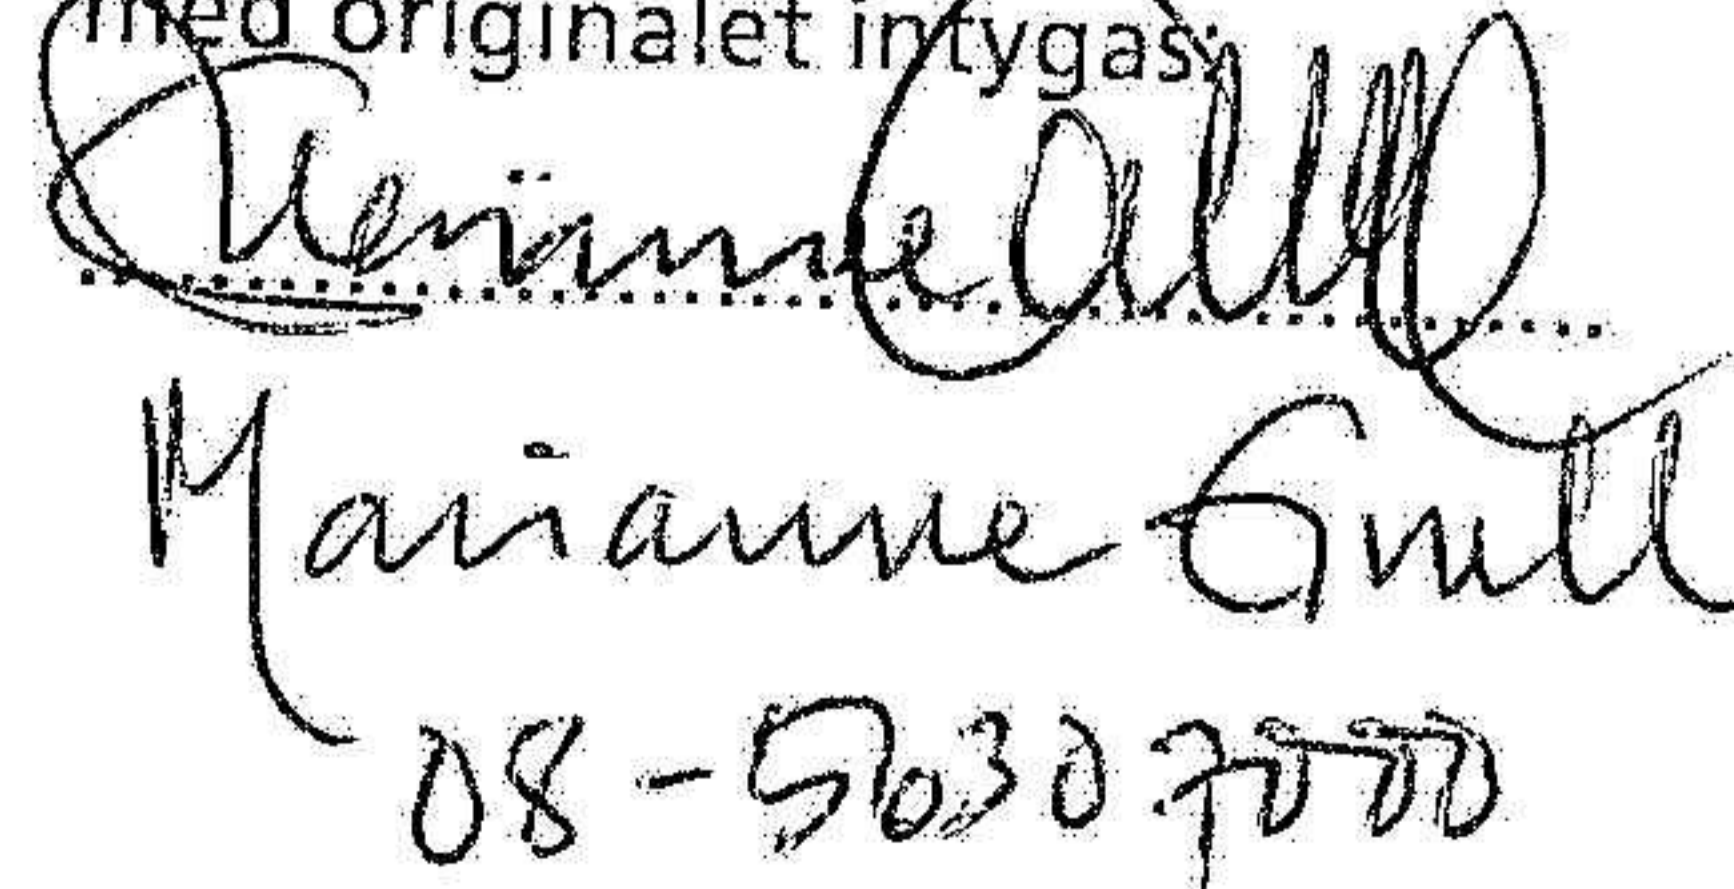 med originalet intygas:
Marianne Gnll
Marianne Gnll
08-5630 7000